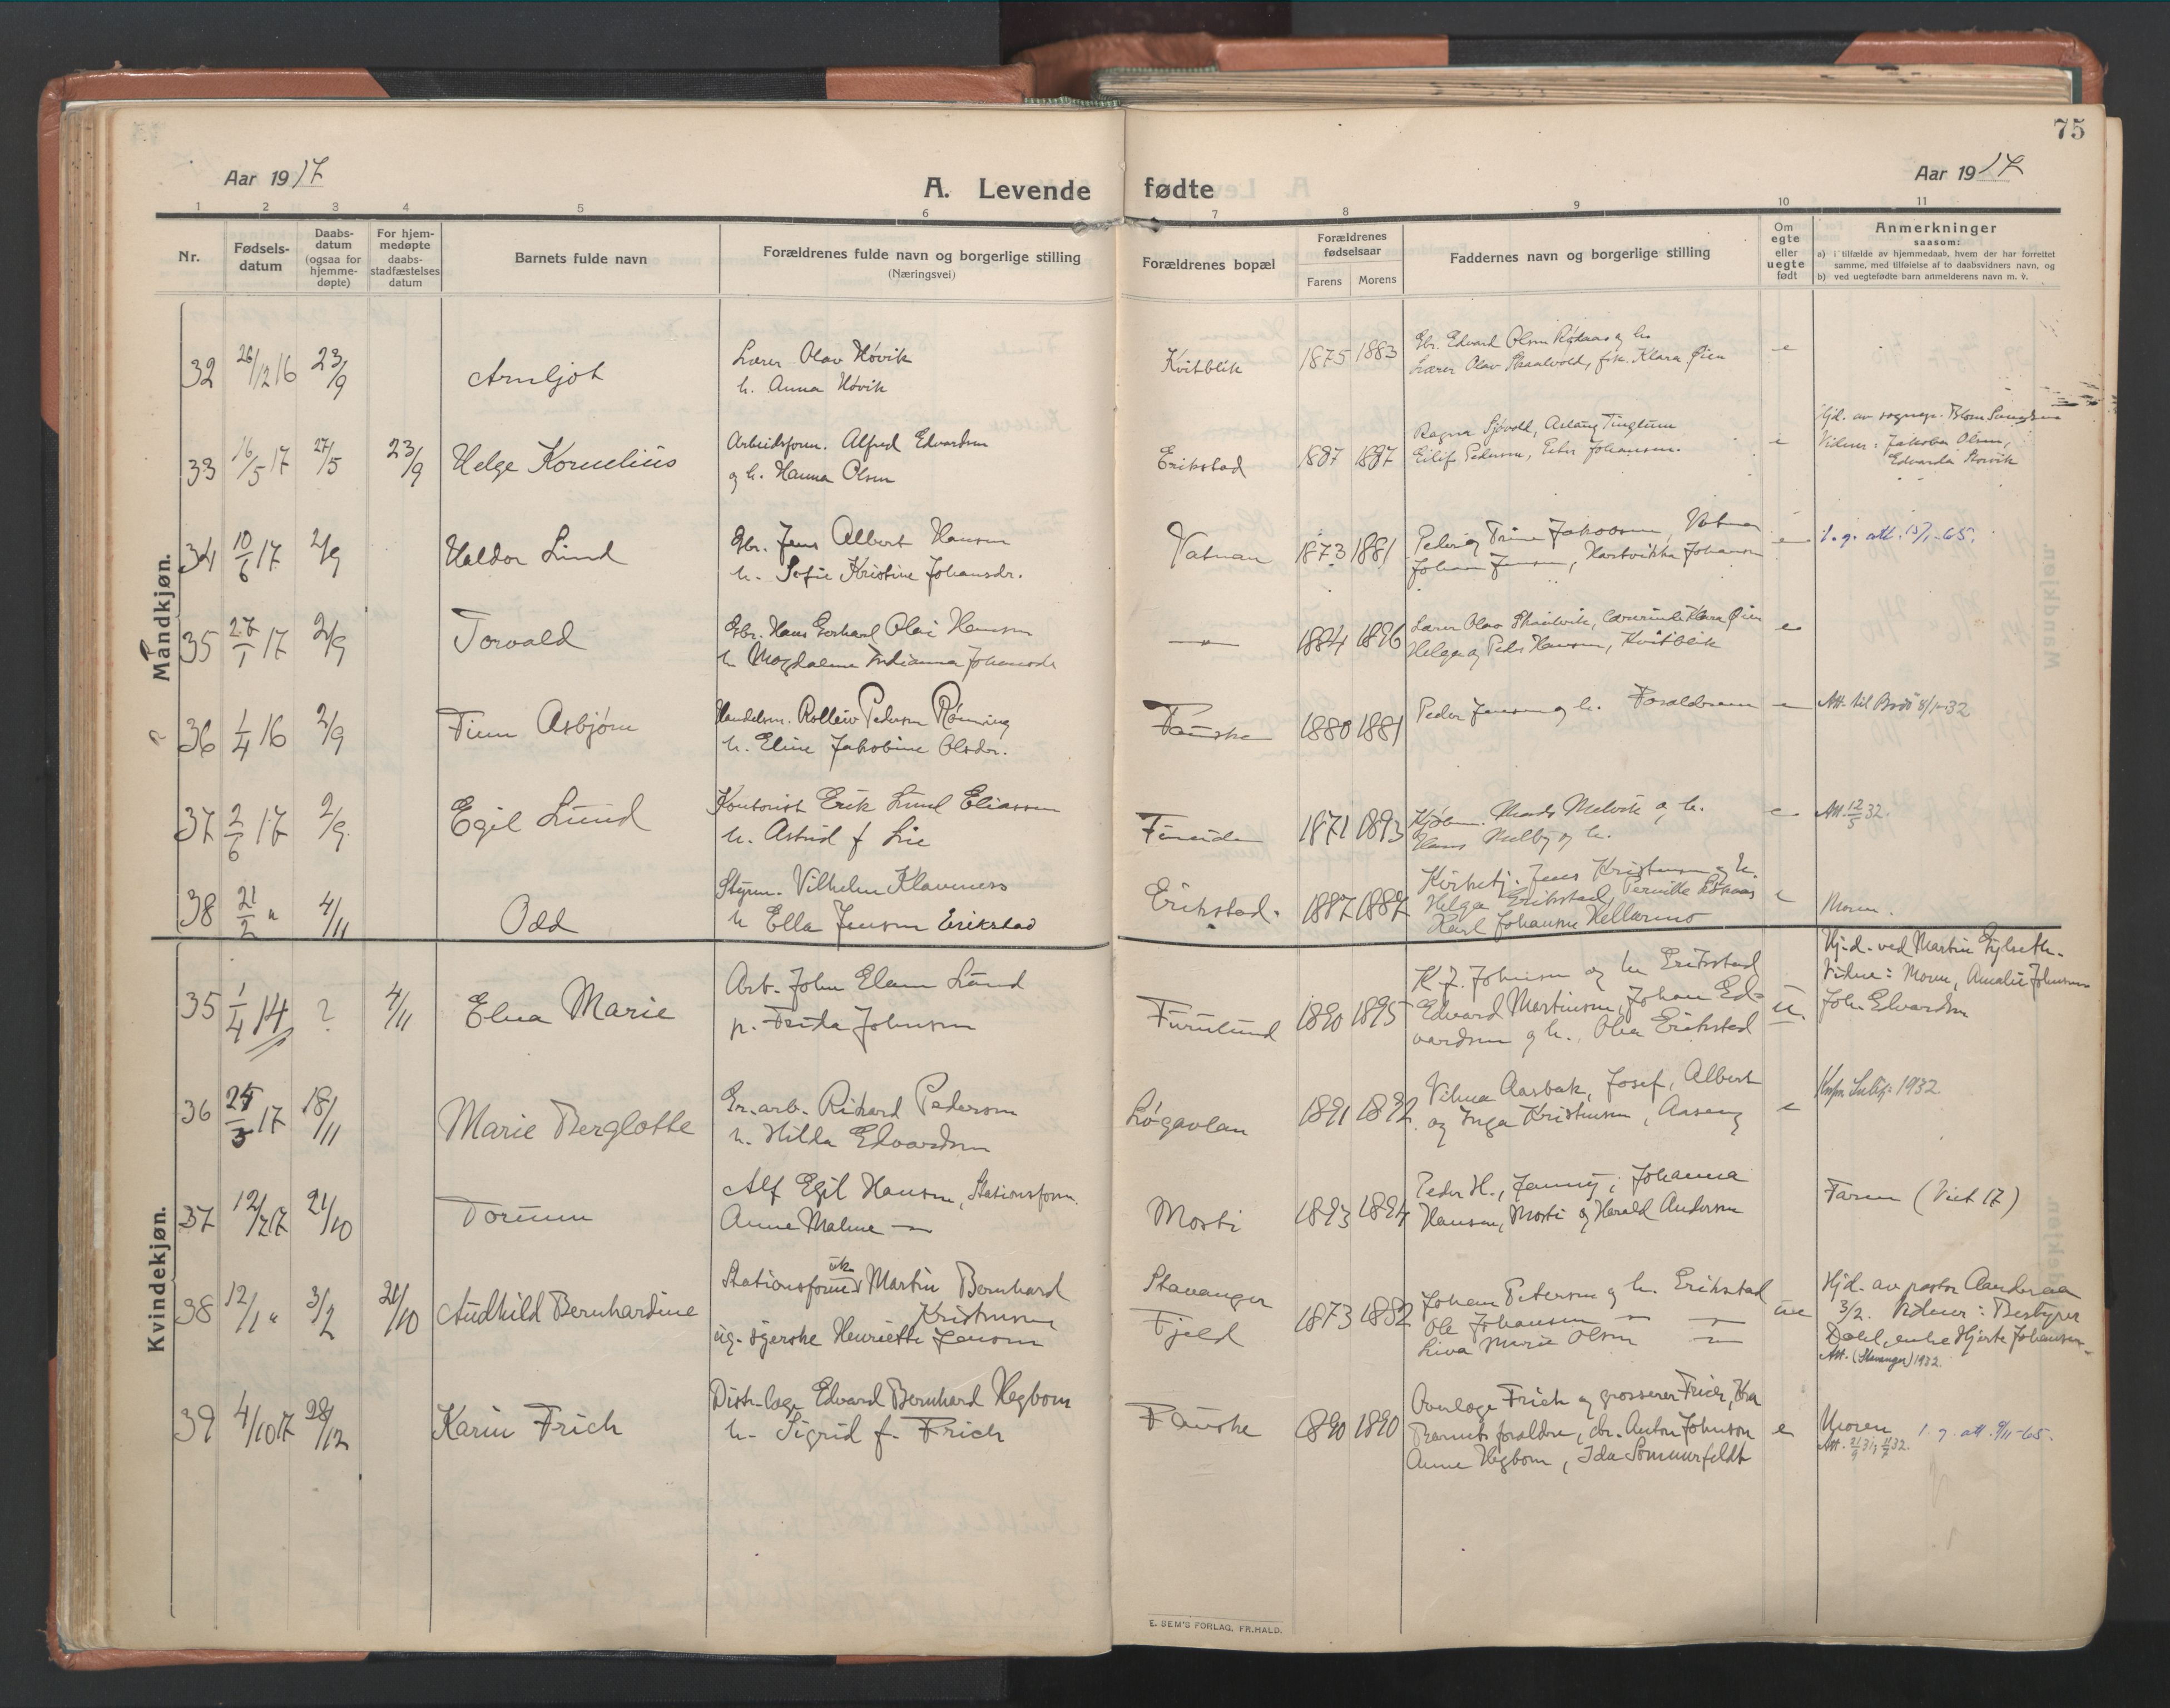 75
Aar 1917
A. Levende fødte
Aar 1917
1 2 3 4 5 6 7 8 9 10 11
Nr.
Fødsels-
datum
Daabs-
datum
(ogsaa for
hjemme-
døpte)
For hjem-
medøpte
daabs-
stadfæstelses
datum
Barnets fulde navn
Forældrenes fulde navn og borgerlige stilling
(Næringsvei)
Forældrenes bopæl
Forældrenes
fødselsaar
Farens Morens
Faddernes navn og borgerlige stilling
Om
egte
eller
uegte
født
Anmerkninger
saasom:
a) i tilfælde av hjemmedaab, hvem der har forrettet
samme, med tilføielse af to daabsvidners navn, og
b) ved uegtefødte barn anmelderens navn m. v.
Mandkjøn.
32 26/12 16 23/9 Arnljot
Lærer Olav Høvik
h. Anna Høvik
Kvitblik 1875 1883
Gbr. Edvard Olsen Rødaas og h.
Lærer Olav Skaalvold, frk. Klara Øien
e
33 16/5 17 27/5 23/9 Helge Kornelius
Arbeidsform. Alfred Edvardsen
og h. Hanna Olsen
Erikstad 1887 1887
Ragna Sjøvold, Aslaug Tinglum
Eilif Pedersen, Peter Johansen.
e
Hjd. av sognepr. Blom
Vidner: Jakoba Olsen,
Edvarda Storvik
34 10/6 17 2/9 Haldor Lund
Gbr. Jens Albert Hansen
h. Sofie Kristine Johansdr.
Vatnan 1873 1881
Peder og Trine Jakobsen, Vatnan
Johan Jensen, Hartvikka Johansen
e
l. g. att. 15/1-65.
35 27/1 17 2/9 Torvald
Gbr. Hans Gerhard Olai Hansen
h Magdalena Indianna Johansdr
— " — 1884 1896
Lærer Olav Skaalvik, lærerinde Klara Øien
Helga og Peder Hansen, Kvitblik
e
36 1/4 16 2/9 Finn Asbjørn
Handelsm. Rolleiv Pedersen Rønning
h. Eline Jakobine Olsdr.
Fauske 1880 1881
Peder Jensen og h. Forældrene
e
Att. til Bodø 8/1-32
37 2/6 17 2/9 Egil Lund
Kontorist Erik Lund Eliassen
h. Astrid f Lie
Finneide 1871 1893
Kjøbm. Mads Melvik og h.
Hans Melby og h.
e
Att. 12/5 32.
38 21/2 " 4/11 Odd
Styrm. Vilhelm Klaveness
h Ella Jensen Erikstad
Erikstad. 1887 1887
Kirketj. Jens Kristensen og h.
Helga Erikstad, Pernille
Karl Johansen Hellarmo
e
Moren.
Kvindekjøn.
35 1/4 14 ? 4/11 Elna Marie
Arb. John Elam Lund
p. Frida Johnsen
Furulund 1890 1895
K. J. Johnsen og h. Erikstad
Edvard Martinsen, Johan Ed-
vardsen og h. Olea Erikstad
u.
Hj.d. ved Martin Gylseth.
Vidne: Moren, Amalie Johnsen
John Edvardsen
36 24/3 17 18/11 Marie Berglotte
Gr.arb. Rikard Pedersen
h. Hilda Edvardsen
Løgavlan 1891 1892
Vilma Aasbak, Josef, Albert
og Inga Kristensen, Aaseng
e
1932
37 12/7 17 21/10 Torunn
Alf Egil Hansen, Stationsform.
Anne Malene —
Mosti 1893 1894
Peder H., Jenny, Johanna
Hansen, Mosti og Harald Andersen
Faren (Viet 17)
38 12/1 " 3/2 21/10 Audhild Bernhardine
Stationsform. Martin Bernhard
Kristensen
ug. syerske Henriette Jensen
Stavanger
Fjeld
1873 1882
Johan Petersen og h. Erikstad
Ole Johansen — —
Liva Marie Olsen —
ue
Hjd. av pastor Aanderaa
3/2. Vidner: Bestyrer
Dahl, enke Hjerte Johansen.
Att. (Stavanger) 1932.
39 4/10 17 28/12 Karin Frich
Distr.læge Edvard Bernhard Hegbom
h. Sigrid f. Frich
Fauske 1890 1890
Overlæge Frich og grosserer Frich, Kra
Barnets forældre, dr. Anton Johnson
Anne Hegbom, Ida Sommerfeldt
e
Moren
l. g. att. 9/11-65.
E. SEM'S FORLAG, FR.HALD.